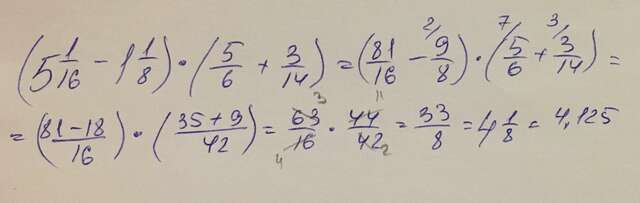 (5 1/16 - 1 1/8) · (5/6 + 3/14) = (81/16 - 2/ 9/8) · (7/ 5/6 + 3/ 3/14) =
= (81-18/16) · (35+9/42) = 63/16 · 44/42 = 33/8 = 4 1/8 = 4,125
3 11
4 2